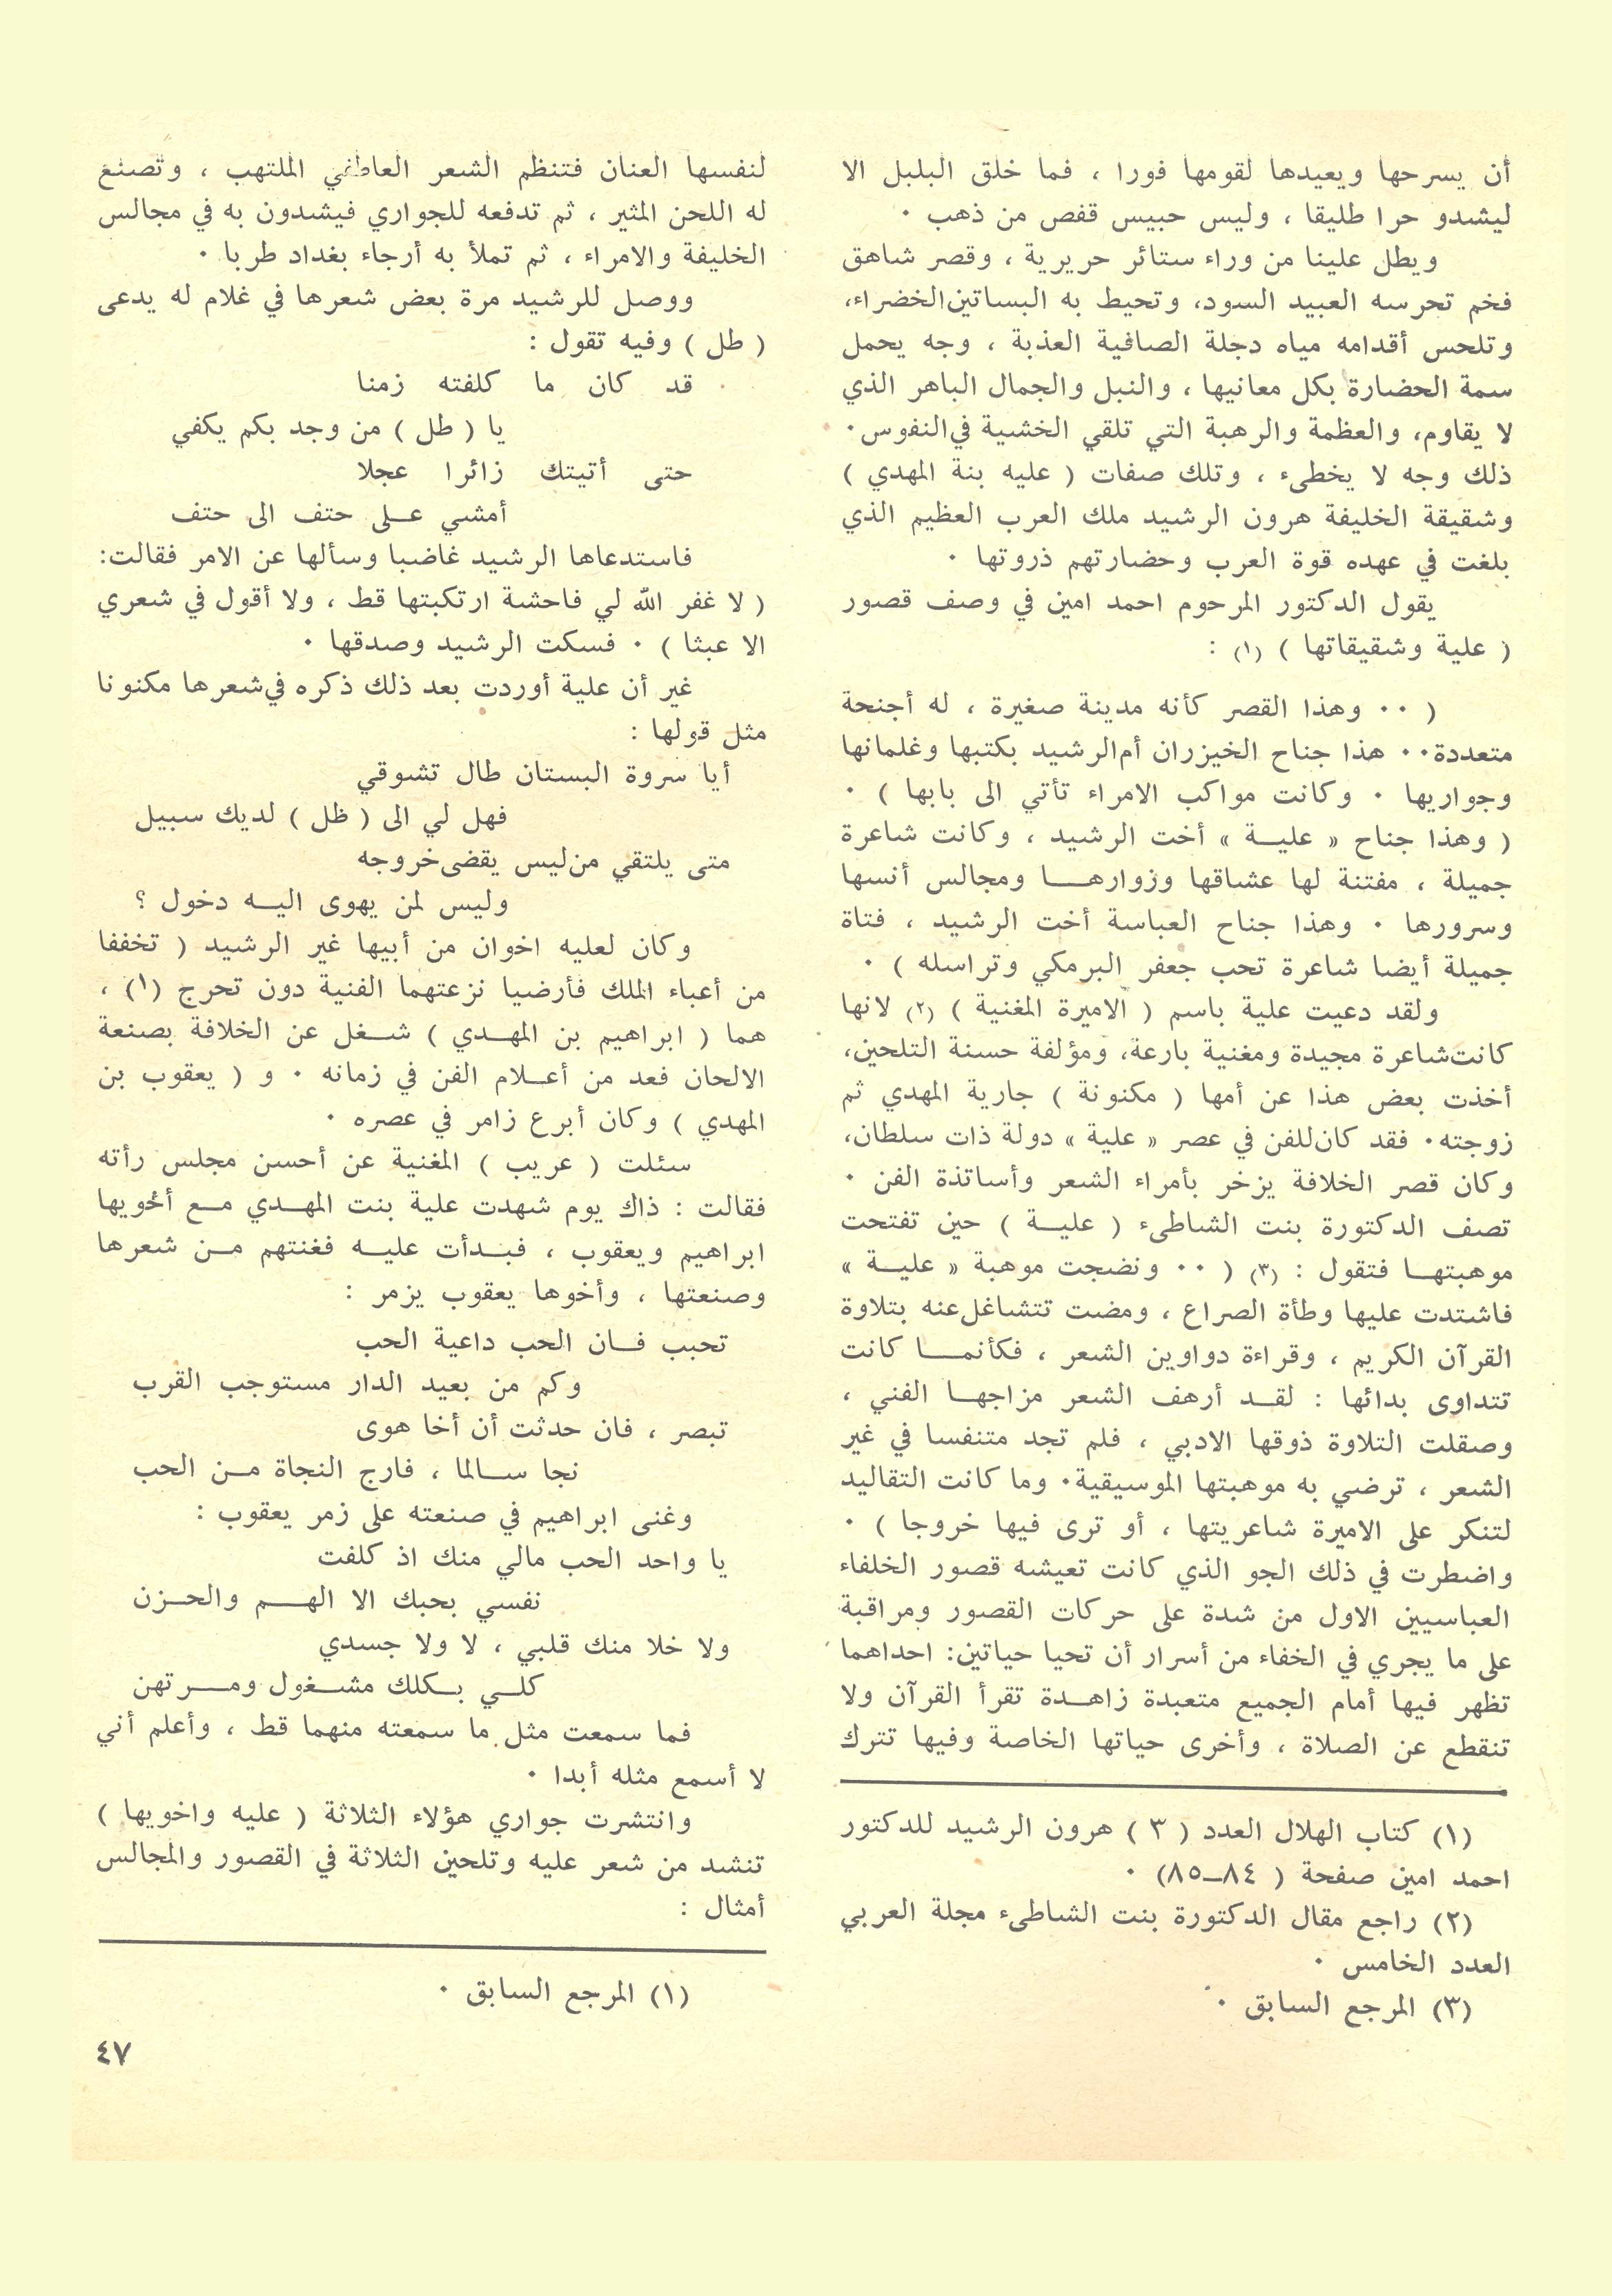 أن يسرحها ويعيدها لقومها فورا ، فما خلق البلبل الا
ليشدو حرا طليقا ، وليس حبيس قفص من ذهب ٠
ويطل علينا من وراء ستائر حريرية ، وقصر شاهق
فخم تحرسه العبيد السود، وتحيط به البساتين الخضراء،
وتلحس أقدامه مياه دجلة الصافية العذبة ، وجه يحمل
سمة الحضارة بكل معانيها ، والنبل والجمال الباهر الذي
لا يقاوم، والعظمة والرهبة التي تلقي الخشية في النفوس٠
ذلك وجه لا يخطىء ، وتلك صفات ( عليه بنة المهدي )
وشقيقة الخليفة هرون الرشيد ملك العرب العظيم الذي
بلغت في عهده قوة العرب وحضارتهم ذروتها ٠
يقول الدكتور المرحوم احمد امين في وصف قصور
( علية وشقيقاتها ) (١) :
( ٠٠ وهذا القصر كأنه مدينة صغيرة ، له أجنحة
متعددة٠٠ هذا جناح الخيزران أم الرشيد بكتبها وغلمانها
وجواريها ٠ وكانت مواكب الامراء تأتي الى بابها ) ٠
( وهذا جناح « عليـة » أخت الرشيد ، وكانت شاعرة
جميلة ، مفتنة لها عشاقها وزوارهـا ومجالس أنسها
وسرورها ٠ وهذا جناح العباسة أخت الرشيد ، فتاة
جميلة أيضا شاعرة تحب جعفر البرمكي وتراسله ) ٠
ولقد دعيت علية باسم ( الاميرة المغنية ) (٢) لانها
كانت شاعرة مجيدة ومغنية بارعة، ومؤلفة حسنة التلحين،
أخذت بعض هذا عن أمها ( مكنونة ) جارية المهدي ثم
زوجته٠ فقد كان للفن في عصر « علية » دولة ذات سلطان،
وكان قصر الخلافة يزخر بأمراء الشعر وأساتذة الفن ٠
تصف الدكتورة بنت الشاطىء ( عليـة ) حين تفتحت
موهبتهـا فتقول : (٣) ( ٠٠ ونضجت موهبة « عليـة »
فاشتدت عليها وطأة الصراع ، ومضت تتشاغل عنه بتلاوة
القرآن الكريم ، وقراءة دواوين الشعر ، فكأنمـا كانت
تتداوى بدائها : لقـد أرهف الشعر مزاجهـا الفني ،
وصقلت التلاوة ذوقها الادبي ، فلم تجد متنفسا في غير
الشعر ، ترضي به موهبتها الموسيقية٠ وما كانت التقاليد
لتنكر على الاميرة شاعريتها ، أو ترى فيها خروجا ) ٠
واضطرت في ذلك الجو الذي كانت تعيشه قصور الخلفاء
العباسيين الاول من شدة على حركات القصور ومراقبة
على ما يجري في الخفاء من أسرار أن تحيا حياتين: احداهما
تظهر فيها أمام الجميع متعبدة زاهـدة تقرأ القرآن ولا
تنقطع عن الصلاة ، وأخرى حياتها الخاصة وفيها تترك
(١) كتاب الهلال العدد ( ٣ ) هرون الرشيد للدكتور
احمد امين صفحة ( ٨٤ــ٨٥) ٠
(٢) راجع مقال الدكتورة بنت الشاطىء مجلة العربي
العدد الخامس ٠
(٣) المرجع السابق ٠
لنفسها العنان فتنظم الشعر العاطفي الملتهب ، وتصنع
له اللحن المثير ، ثم تدفعه للجواري فيشدون به في مجالس
الخليفة والامراء ، ثم تملأ به أرجاء بغداد طربا ٠
ووصل للرشيد مرة بعض شعرها في غلام له يدعى
( طل ) وفيه تقول :
قد كان ما كلفته زمنا
يا ( طل ) من وجد بكم يكفي
حتى أتيتك زائرا عجلا
أمشي عـلى حتف الى حتف
فاستدعاها الرشيد غاضبا وسألها عن الامر فقالت:
( لا غفر الله لي فاحشة ارتكبتها قط ، ولا أقول في شعري
الا عبثا ) ٠ فسكت الرشيد وصدقها ٠
غير أن علية أوردت بعد ذلك ذكره في شعرها مكنونا
مثل قولها :
أيا سروة البستان طال تشوقي
فهل لي الى ( ظل ) لديك سبيل
متى يلتقي من ليس يقضى خروجه
وليس لمن يهوى اليـه دخول ؟
وكان لعليه اخوان من أبيها غير الرشيد ( تخففا
من أعباء الملك فأرضيا نزعتهما الفنية دون تحرج (١) ،
هما ( ابراهيم بن المهـدي ) شـغل عن الخلافة بصنعة
الالحان فعد من أعـلام الفن في زمانه ٠ و ( يعقوب بن
المهدي ) وكان أبرع زامر في عصره ٠
سئلت ( عريب ) المغنية عن أحسن مجلس رأته
فقالت : ذاك يوم شهدت علية بنت المهـدي مـع أخويها
ابراهيم ويعقوب ، فبـدأت عليـه فغنتهم مـن شعرها
وصنعتها ، وأخوها يعقوب يزمر :
تحبب فـان الحب داعية الحب
وكم من بعيد الدار مستوجب القرب
تبصر ، فان حدثت أن أخا هوى
نجا سـالما ، فارج النجاة مـن الحب
وغنى ابراهيم في صنعته على زمر يعقوب :
يا واحد الحب مالي منك اذ كلفت
نفسي بحبك الا الهـم والحـزن
ولا خلا منك قلبي ، لا ولا جسدي
كلـي بـكلك مشـغول ومـرتهن
فما سمعت مثل ما سمعته منهما قط ، وأعلم أني
لا أسمع مثله أبدا ٠
وانتشرت جواري هؤلاء الثلاثة ( عليه واخويها )
تنشد من شعر عليه وتلحين الثلاثة في القصور والمجالس
أمثال :
(١) المرجع السابق ٠
٤٧